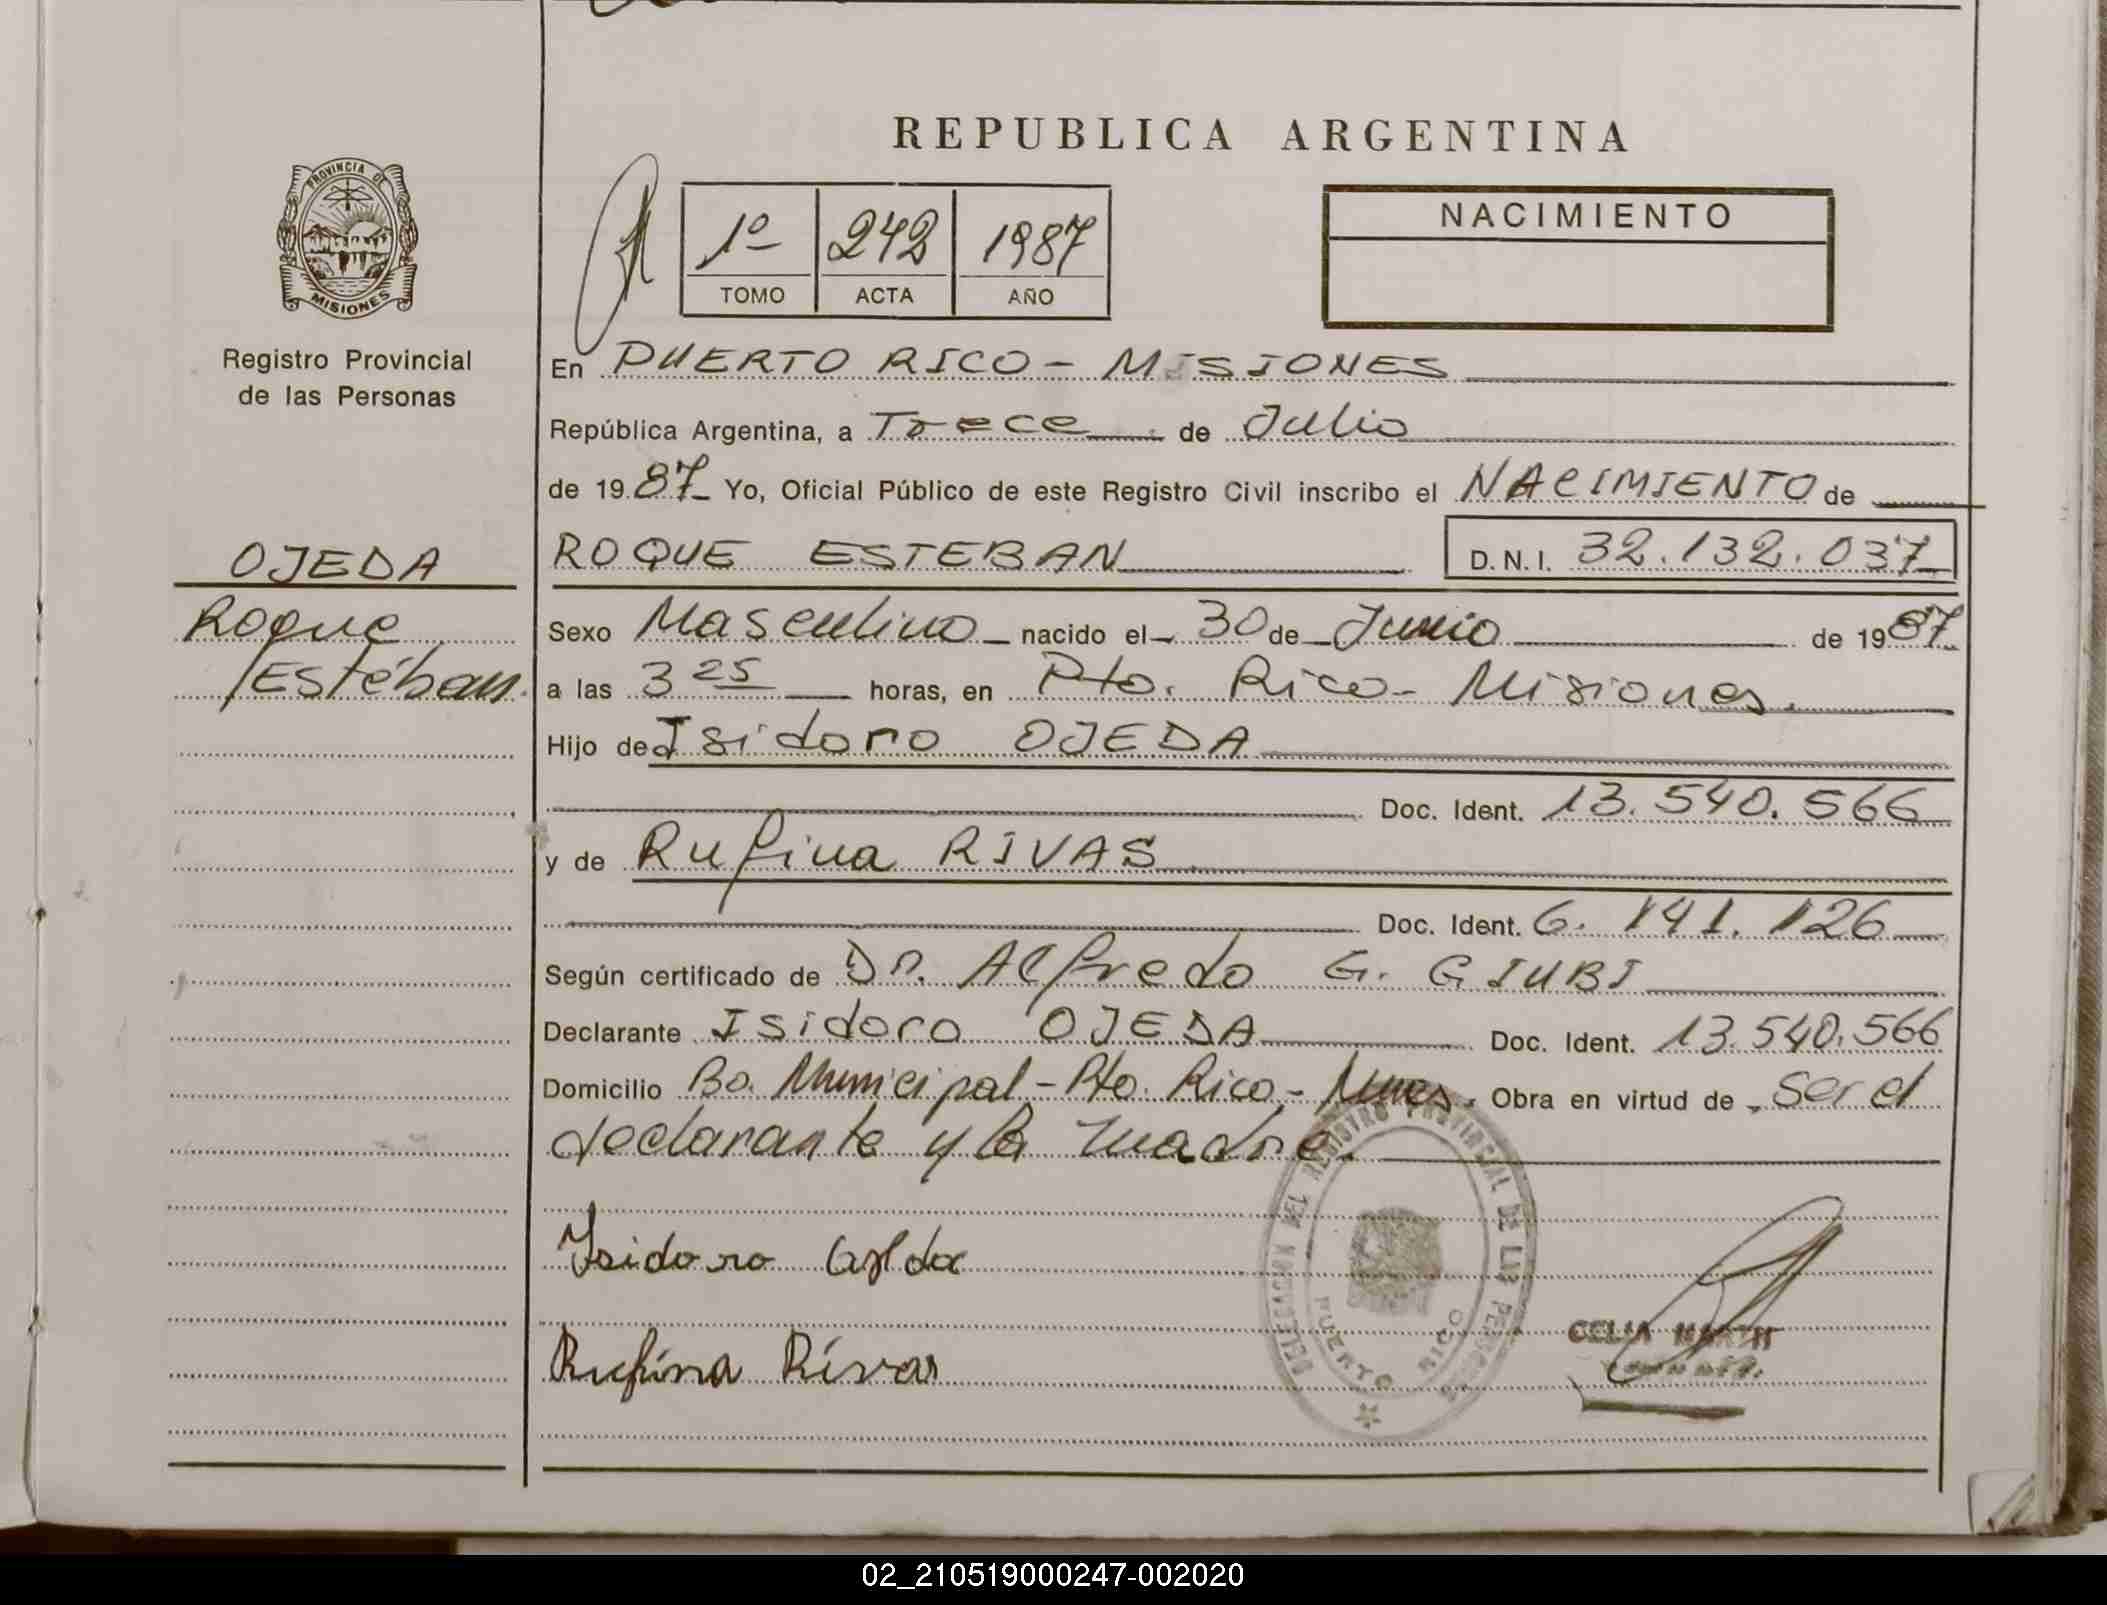 REPUBLICA ARGENTINA
PROVINCIA DE
MISIONES
Registro Provincial
de las Personas
1º 242 1987
TOMO ACTA AÑO
NACIMIENTO
En PUERTO RICO - MISIONES
República Argentina, a Trece de Julio
de 19 87 Yo, Oficial Público de este Registro Civil inscribo el NACIMIENTO de
OJEDA
Roque
Estéban
ROQUE ESTEBAN D.N.I. 32.132.037
Sexo Masculino nacido el 30 de Junio de 19 87
a las 3 25 horas, en Pto. Rico - Misiones.
Hijo de Isidoro OJEDA
Doc. Ident. 13.540.566
y de Rufina RIVAS
Doc. Ident. 6.141.126
Según certificado de Dr. Alfredo G. GIUBI
Declarante Isidoro OJEDA Doc. Ident. 13.540.566
Domicilio Bo. Municipal - Pto. Rico - Mnes. Obra en virtud de ser el
declarante y la madre.
DELEGACION DEL REGISTRO PROVINCIAL DE LAS PERSONAS
PUERTO RICO
Isidoro
Rufina Rivas
CELIA
02_210519000247-002020